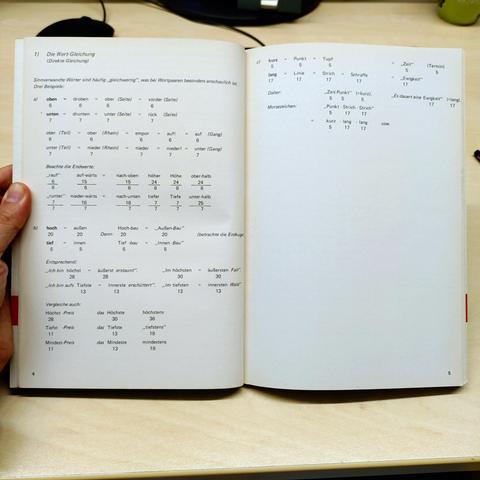 1) Die Wort-Gleichung
(Direkte Gleichung)
Sinnverwandte Wörter sind häufig „gleichwertig", was bei Wortpaaren besonders anschaulich ist.
Drei Beispiele:
a) oben – droben – ober (Seite) – vorder (Seite)
6 6 6 6
unten – drunten – unter (Seite) – rück (Seite)
7 7 7 7
ober (Teil) – ober (Rhein) – empor – auf! – auf (Gang)
6 6 6 6 6
unter (Teil) – nieder (Rhein) – nieder – nieder! – unter (Gang)
7 7 7 7 7
Beachte die Endwerte:
„rauf" auf-wärts – nach-oben höher Höhe ober-halb
6 15 15 24 24 24
6 6 6 6 6 6
„runter" nieder-wärts – nach-unten tiefer Tiefe unter-halb
7 16 16 7 7 25
7 7 7 7 7 7
b) hoch – außen Hoch-bau – „Außen-Bau"
20 20 Denn: 20 20 (betrachte die Endung
tief – innen Tief-bau – „Innen-Bau"
5 5 5 5
Entsprechend:
„Ich bin höchst – äußerst erstaunt". „Im höchsten – äußersten Fall".
28 28 30 30
„Ich bin aufs Tiefste – innerste erschüttert". „Im tiefsten – innersten Wald"
13 13 13 13
Vergleiche auch:
Höchst-Preis das Höchste höchstens
28 30 36
Tiefst-Preis das Tiefste „tiefstens"
11 13 19
Mindest-Preis das Mindeste mindestens
11 13 19
4
c) kurz – Punkt – Tupf – „Zeit" (Termin)
5 5 5 5 5
lang – Linie – Strich – Schraffe – „Ewigkeit"
17 17 17 17 17
Daher: „Zeit-Punkt" (-kurz). „Es dauert eine Ewigkeit" (-lang).
5 5 5 17 17
Morsezeichen: „Punkt - Strich - Strich"
5 17 17
= kurz - lang - lang usw.
5 17 17
5